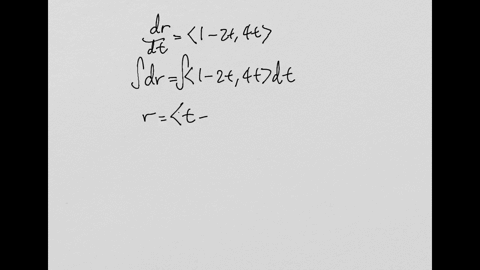 dr/dt = ⟨1-2t, 4t⟩
∫dr = ∫⟨1-2t, 4t⟩dt
r = ⟨t -